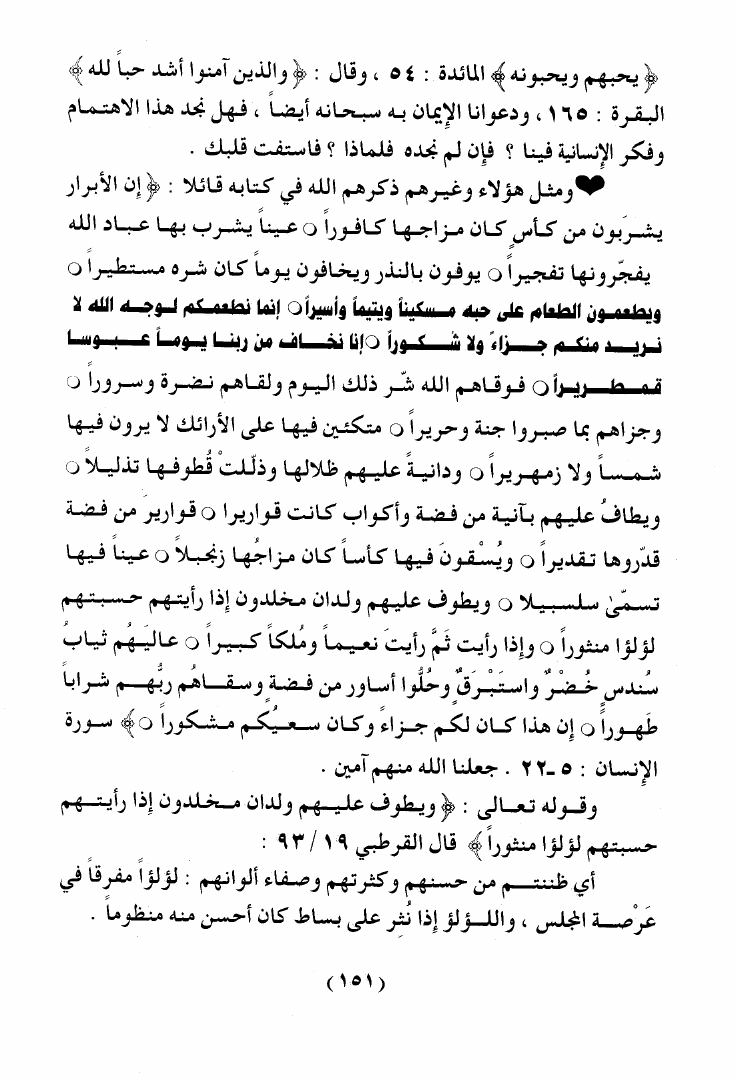 ﴿ يحبهم ويحبونه ﴾ المائدة : ٥٤ ، وقال : ﴿ والذين آمنوا أشد حباً لله ﴾
البقرة : ١٦٥ ، ودعوانا الإيمان به سبحانه أيضاً ، فهل نجد هذا الاهتمام
وفكر الإنسانية فينا ؟ فإن لم نجده فلماذا ؟ فاستفت قلبك .
❤ومثل هؤلاء وغيرهم ذكرهم الله في كتابه قائلا : ﴿ إن الأبرار
يشرَبون من كـأسٍ كـان مـزاجـهـا كـافـوراً ○ عـيناً يـشـرب بـهـا عـبـاد الله
يفجّرونها تفجيراً ○ يوفون بالنذر ويخافون يوماً كان شره مستطيراً ○
ويطعمون الطعام على حبه مسكيناً ويتيماً وأسيراً ○ إنما نطعمكم لوجه الله لا
نريد منكم جزاءً ولا شكوراً ○إنا نخاف من ربنا يوماً عبوسا
قمطريراً ○ فوقاهم الله شّر ذلك اليوم ولقاهم نضرة وسروراً ○
وجزاهم بما صبروا جنة وحريراً ○ متكئين فيها على الأرائك لا يرون فيها
شمساً ولا زمهريراً ○ ودانيةً عليهم ظلالها وذلّلتْ قُطوفها تذليلاً ○
ويطافُ عليهم بآنية من فضة وأكواب كانت قواريرا ○ قواريرَ من فضة
قدّروها تقديراً ○ ويُسْقونَ فيها كأساً كان مزاجُها زنجبلاً ○ عيناً فيها
تسمّىٰ سلسبيلا ○ ويطوف عليهم ولدان مخلدون إذا رأيتهم حسبتهم
لؤلؤا منثوراً ○ وإذا رأيت ثَمَّ رأيتَ نعيماً ومُلكاً كبيراً ○ عاليَهُم ثيابُ
سُندس خُضْرٌ واستَبْرَقٌ وحُلُّوا أساور من فضة وسقاهُم ربُّهم شراباً
طهوراً ○ إن هذا كان لكم جزاءً وكان سعيُكم مشكوراً ○ ﴾ سورة
الإنسان : ٥ ـ٢٢ . جعلنا الله منهم آمين .
وقوله تعالى : ﴿ ويطوف عليهم ولدان مخلدون إذا رأيتهم
حسبتهم لؤلؤا منثوراً ﴾ قال القرطبي ١٩ / ٩٣ :
أي ظننتم من حسنهم وكثرتهم وصفاء ألوانهم : لؤلؤاً مفرقاً في
عَرْصة المجلس ، واللؤلؤ إذا نُثر على بساط كان أحسن منه منظوماً .
( ١٥١ )